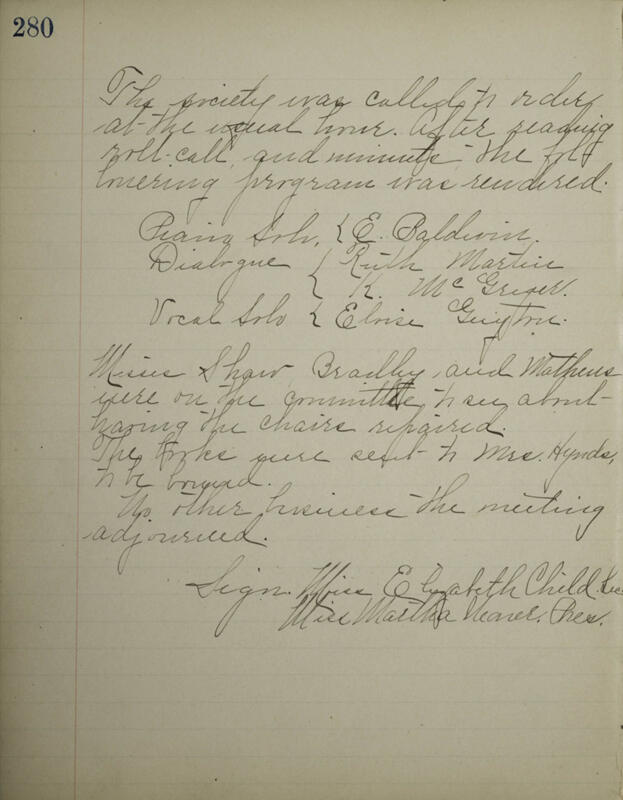 280
The society was called to order
at the usual hour. After reading
roll-call, and minutes the fol-
lowering program was rendered.
Piano Solo, { E. Baldwin.
Dialogue { Ruth Martin
{ K. McGregor.
Vocal Solo { Eloise Guyton.
Misses Shaw, Bradley, and Mathews
were on the committe, to see about
having the chairs repaired.
The books were sent to Mrs. Hynds,
to be bound.
No other business the meeting
adjourned.
Sign. Miss Elizabeth Child. Sec
Miss Martha Pres.